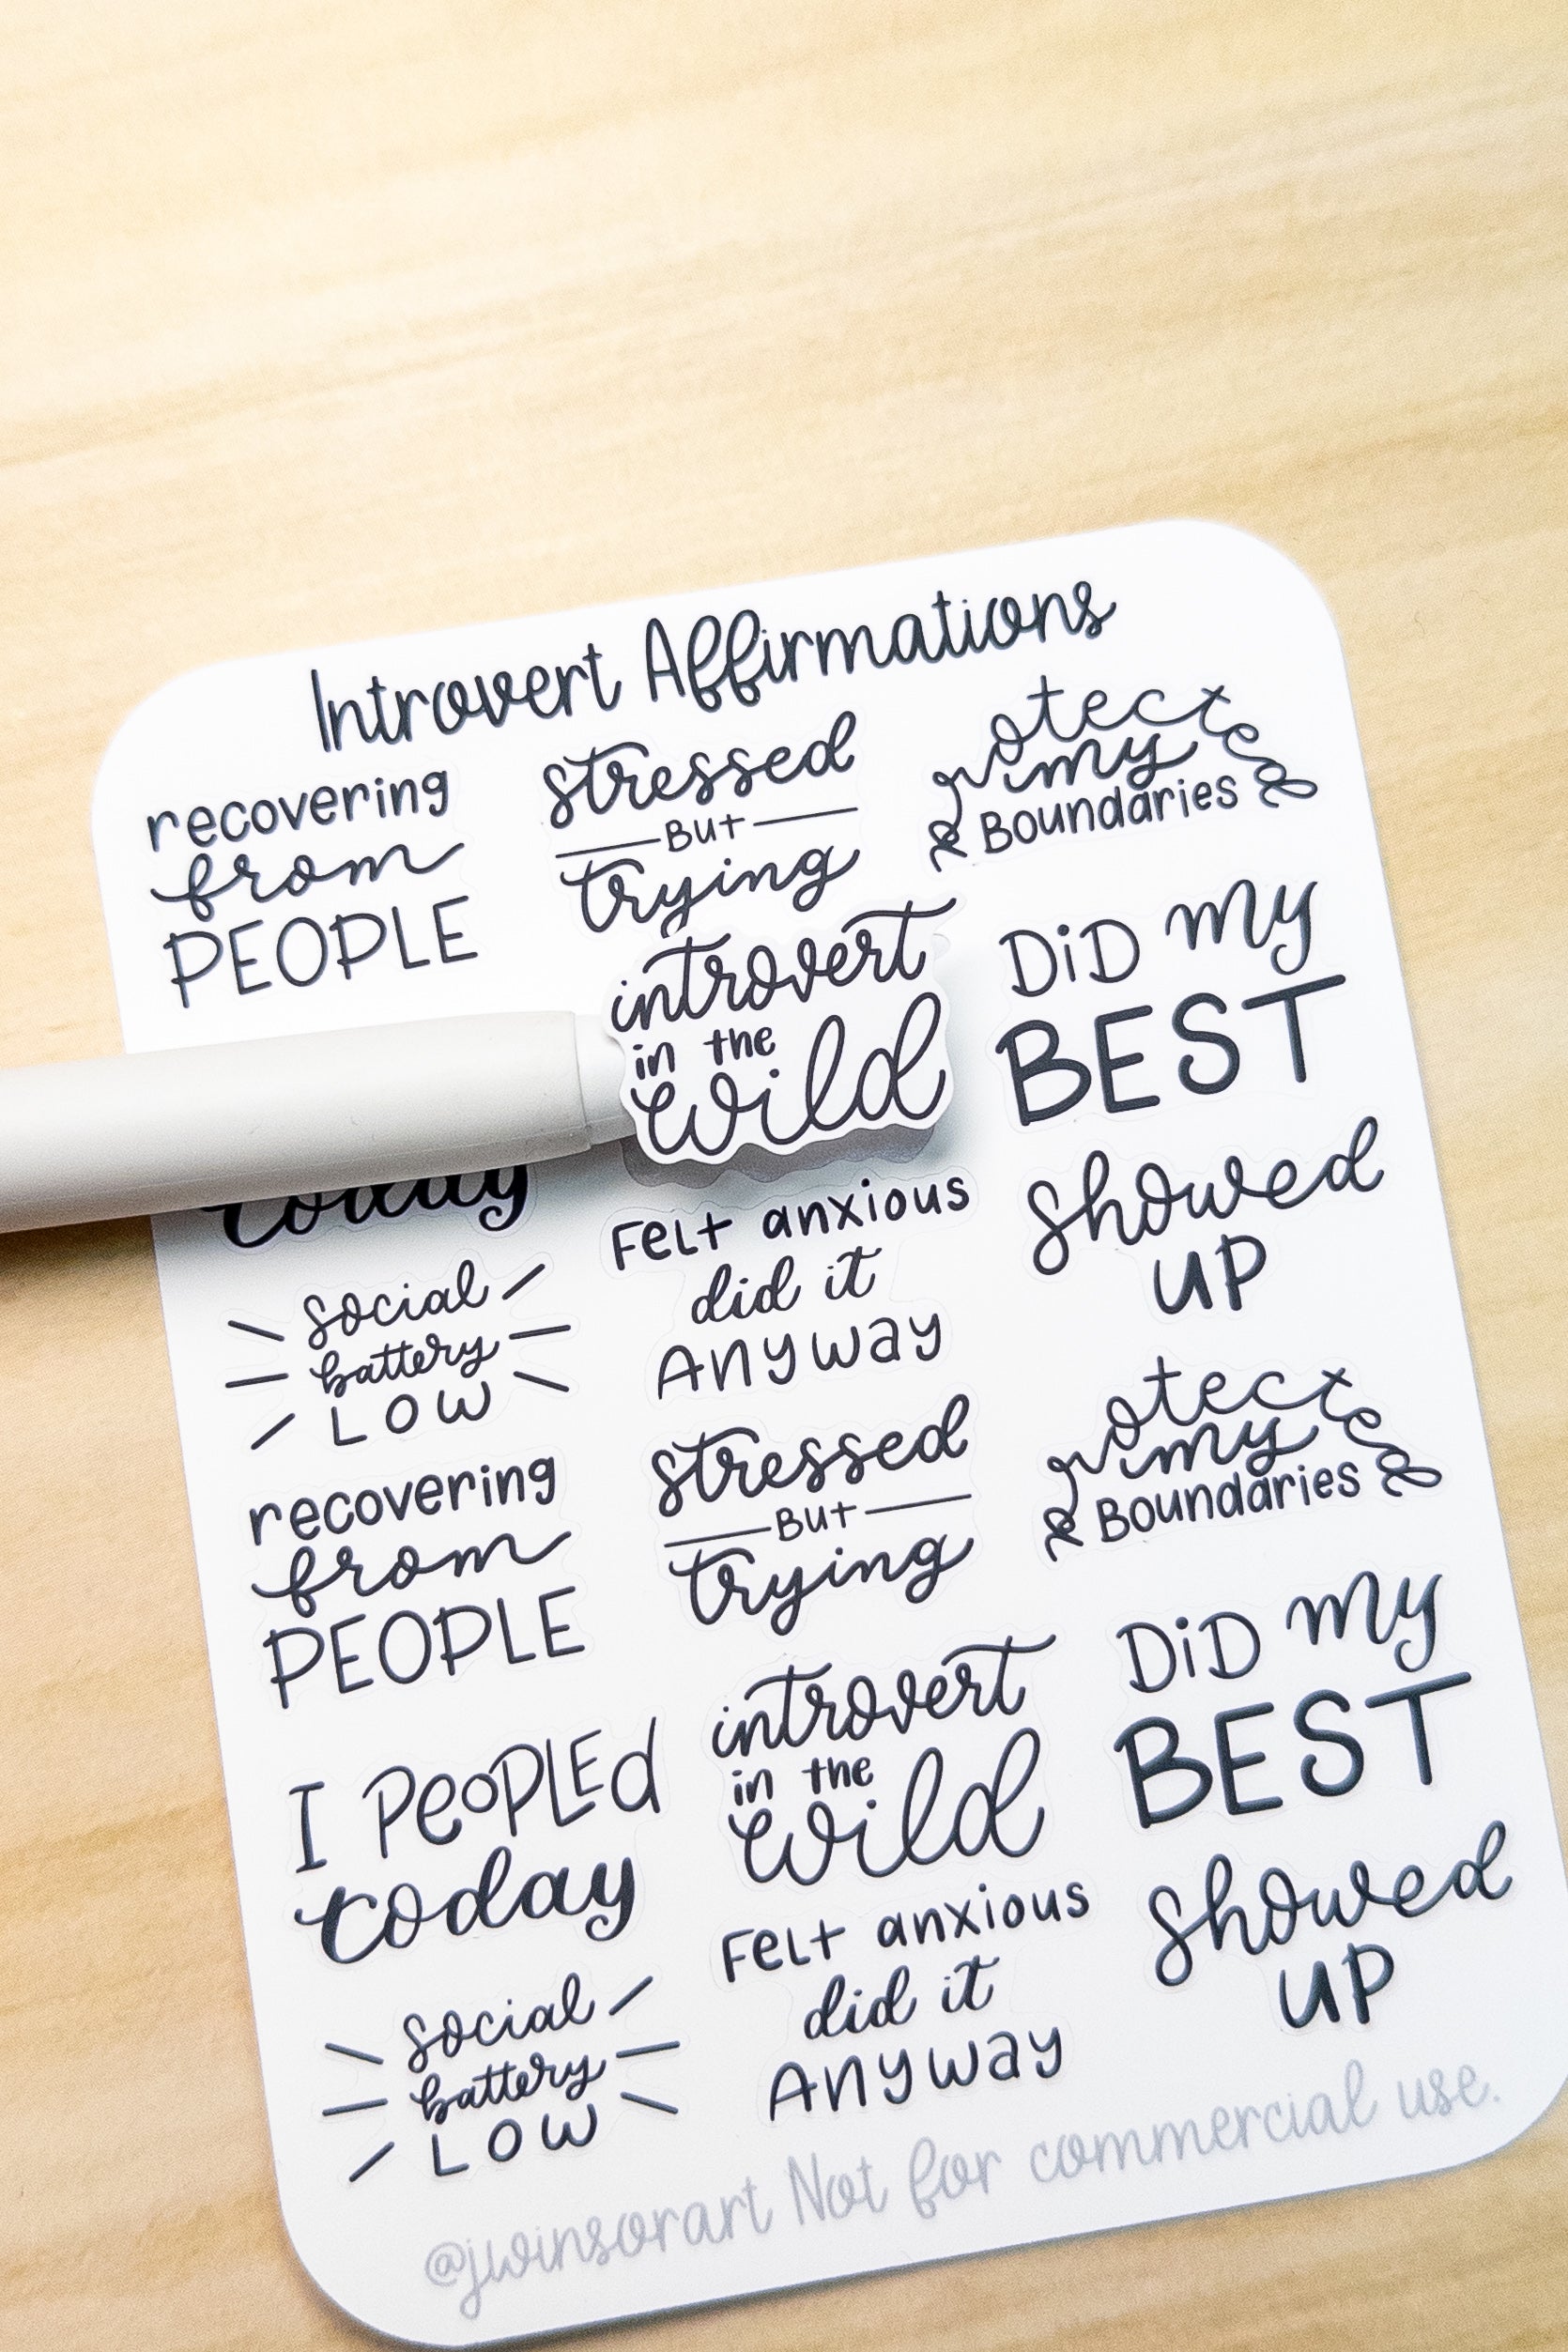 Introvert Affirmations
recovering
from
PEOPLE
stressed
BUT
trying
protected
my
BOUNDARIES
introvert
in the
wild
DiD my
BEST
today
FELT anxious
did it
ANYWAY
showed
UP
social
battery
LOW
recovering
from
PEOPLE
stressed
BUT
trying
protected
my
BOUNDARIES
I PEOPLEd
today
introvert
in the
wild
DiD my
BEST
social
battery
LOW
FELT anxious
did it
ANYWAY
showed
UP
@jwinsorart Not for commercial use.